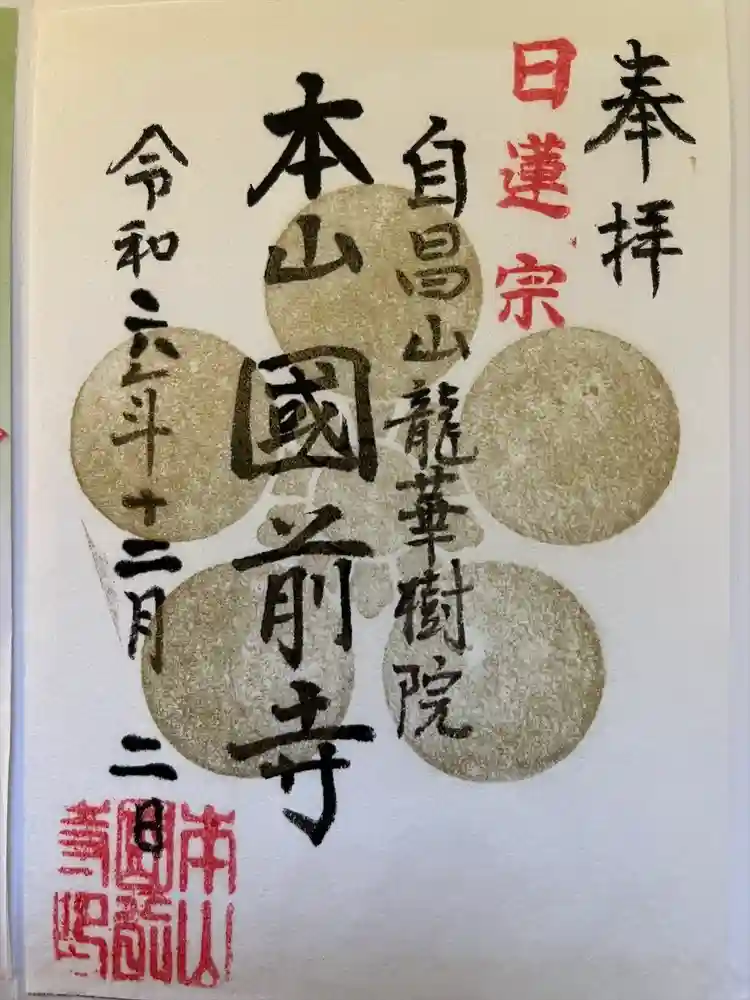 奉拝
日蓮宗
自昌山龍華樹院
本山 國前寺
令和六年十二月 二日
本山
國前
寺印